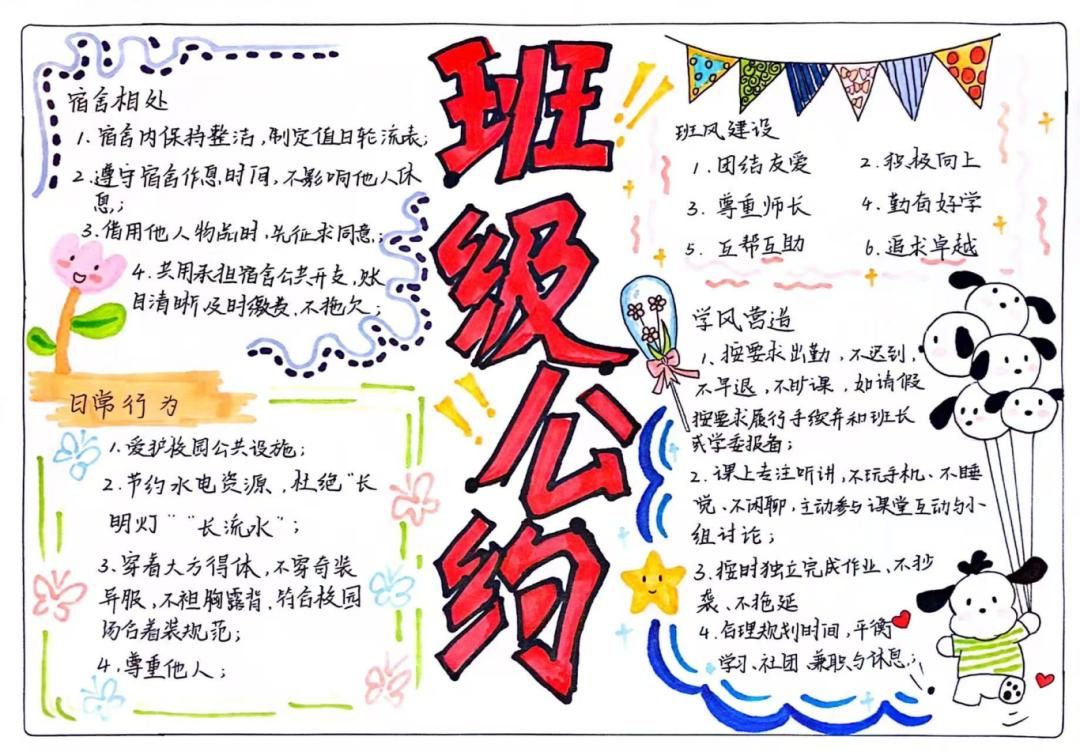 班级公约
宿舍相处
1、宿舍内保持整洁,制定值日轮流表;
2、遵守宿舍作息时间,不影响他人休
息;
3、借用他人物品时,先征求同意;
4、共用承担宿舍公共开支,账
目清晰及时缴费,不拖欠;
日常行为
1、爱护校园公共设施;
2、节约水电资源,杜绝“长
明灯”“长流水”;
3、穿着大方得体,不穿奇装
异服,不袒胸露背、符合校园
场合着装规范;
4、尊重他人;
班风建设
1. 团结友爱
2. 积极向上
3. 尊重师长
4. 勤奋好学
5. 互帮互助
6. 追求卓越
学风营造
1、按要求出勤,不迟到,
不早退,不旷课,如请假
按要求履行手续并和班长
或学委报备;
2、课上专注听讲,不玩手机、不睡
觉、不闲聊,主动参与课堂互动与小
组讨论;
3、按时独立完成作业、不抄
袭、不拖延
4、合理规划时间,平衡
学习、社团、兼职与休息;